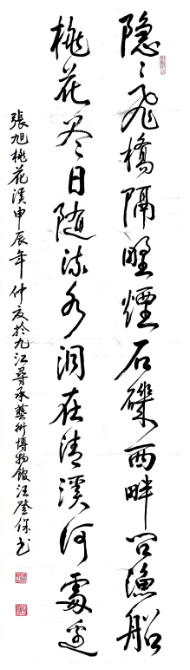 隐々飛橋隔野煙石磯西畔问漁船
桃花尽日随流水洞在清溪何處边
張旭桃花溪甲辰年仲夏於九江尋承藝術博物館汪登保书